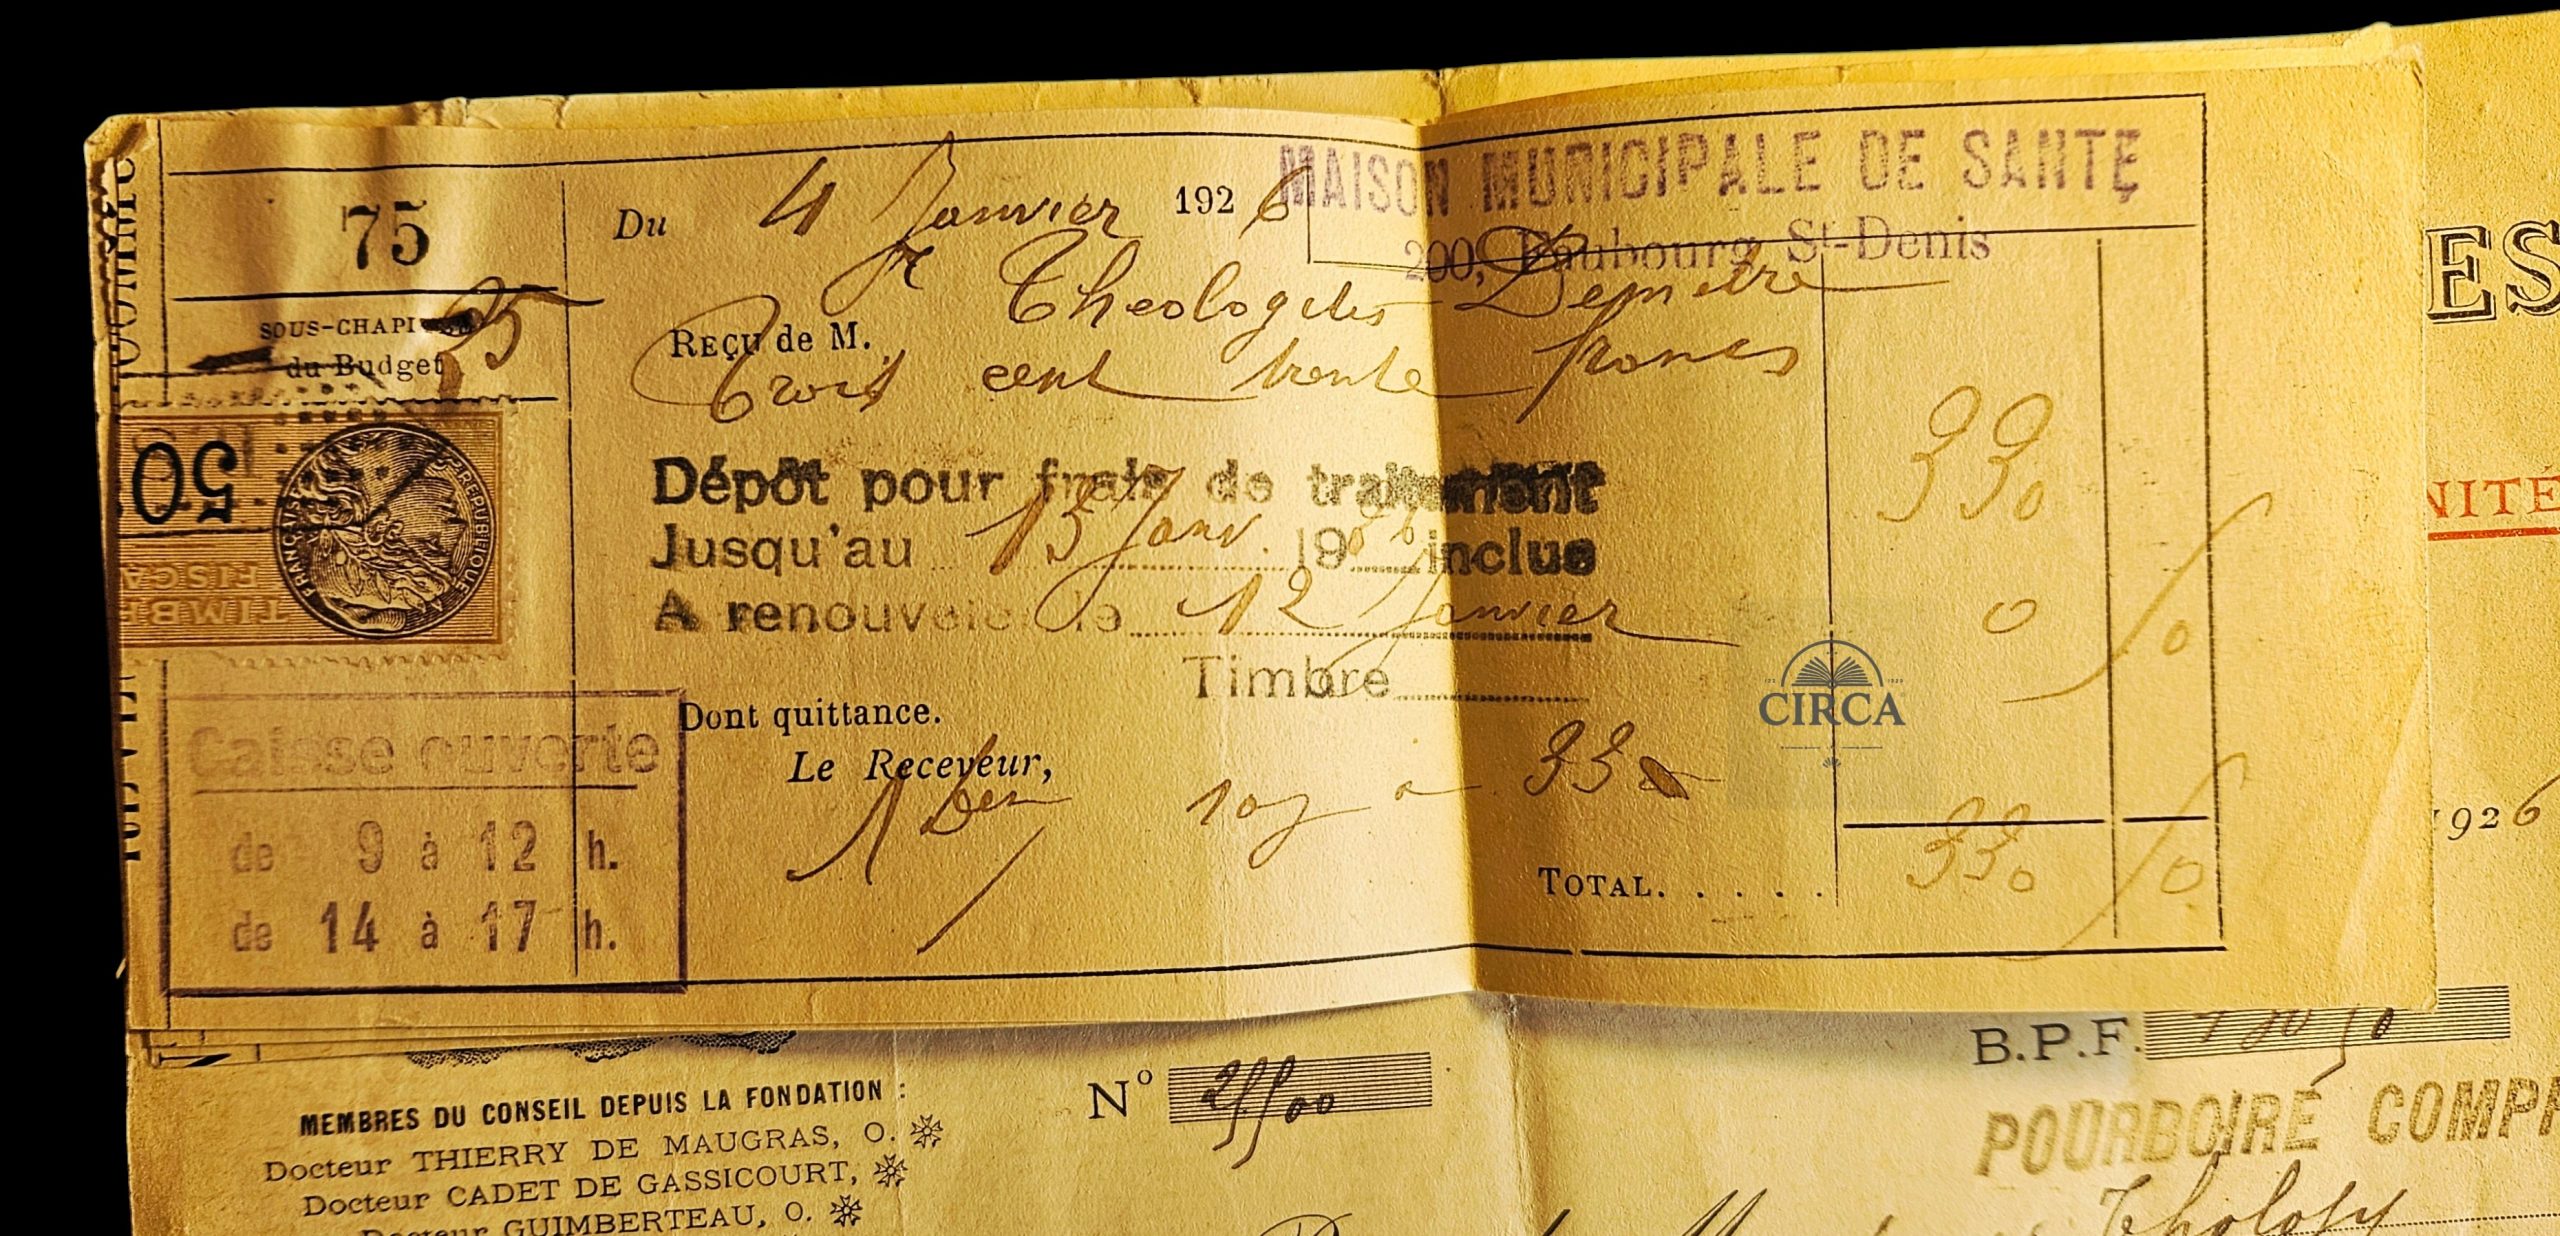 MAISON MUNICIPALE DE SANTÉ
200, Faubourg St-Denis
75
Du 4 Janvier 1926
SOUS-CHAPITRE 35
du Budget
REÇU de M. Theologitis Demetre
Trois cent trente francs
Dépôt pour frais de traitement 330
Jusqu'au 13 Janv. 1926 inclus
A renouveler le 12 Janvier
0 0
Timbre
50
TIMBRE
FISCAL
RÉPUBLIQUE FRANÇAISE
Dont quittance.
Le Receveur,
10 j à 33
TOTAL. . . . . 330 0
Caisse ouverte
de 9 à 12 h.
de 14 à 17 h.
CIRCA
ES
NITÉ
1926
B.P.F.
POURBOIRE COMPR
MEMBRES DU CONSEIL DEPUIS LA FONDATION :
No
Docteur THIERRY DE MAUGRAS, O.
Docteur CADET DE GASSICOURT,
Docteur GUIMBERTEAU, O.